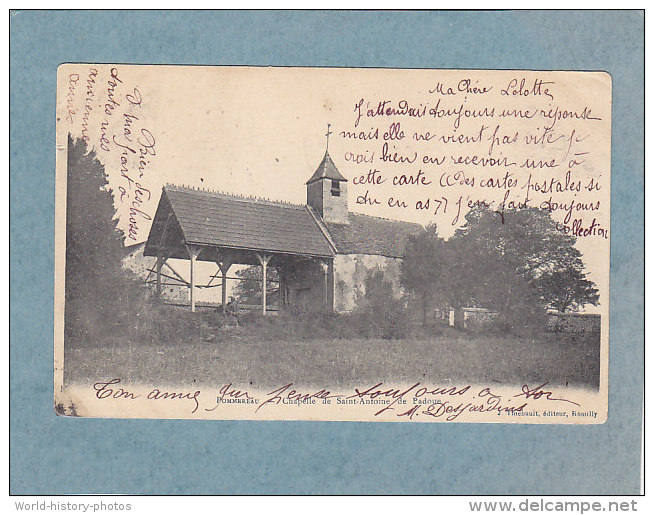 Ma Chère Lolotte
J'attendais toujours une réponse
mais elle ne vient pas vite je
crois bien en recevoir une à
cette carte (des cartes postales si
tu en as ?) j'en fait toujours
collection
Bien des choses
de ma part à
toutes mes
anciennes
Ton amie qui pense toujours à toi
M. Desjardins
POMMEREAU — Chapelle de Saint-Antoine de Padoue
Thiébault, éditeur, Romilly
World-history-photos
http://www.delcampe.net